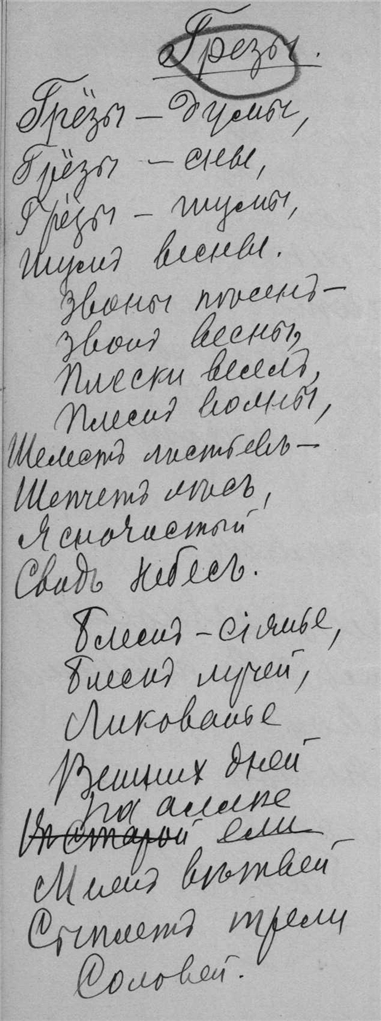 Грезы.
Грёзы — думы,
Грёзы — сны,
Грёзы — шумы,
Шумъ весны.
Звоны пѣсенъ —
Звонъ весны,
Плески веселъ,
Плескъ волны,
Шелестъ листьевъ —
Шепчетъ лѣсъ,
Ясночистый
Сводъ небесъ.
Блескъ — сіянье,
Блескъ лучей,
Ликованье
Вешних дней
На
старой ели
Межъ вѣтвей
Сыплетъ трели
Соловей.